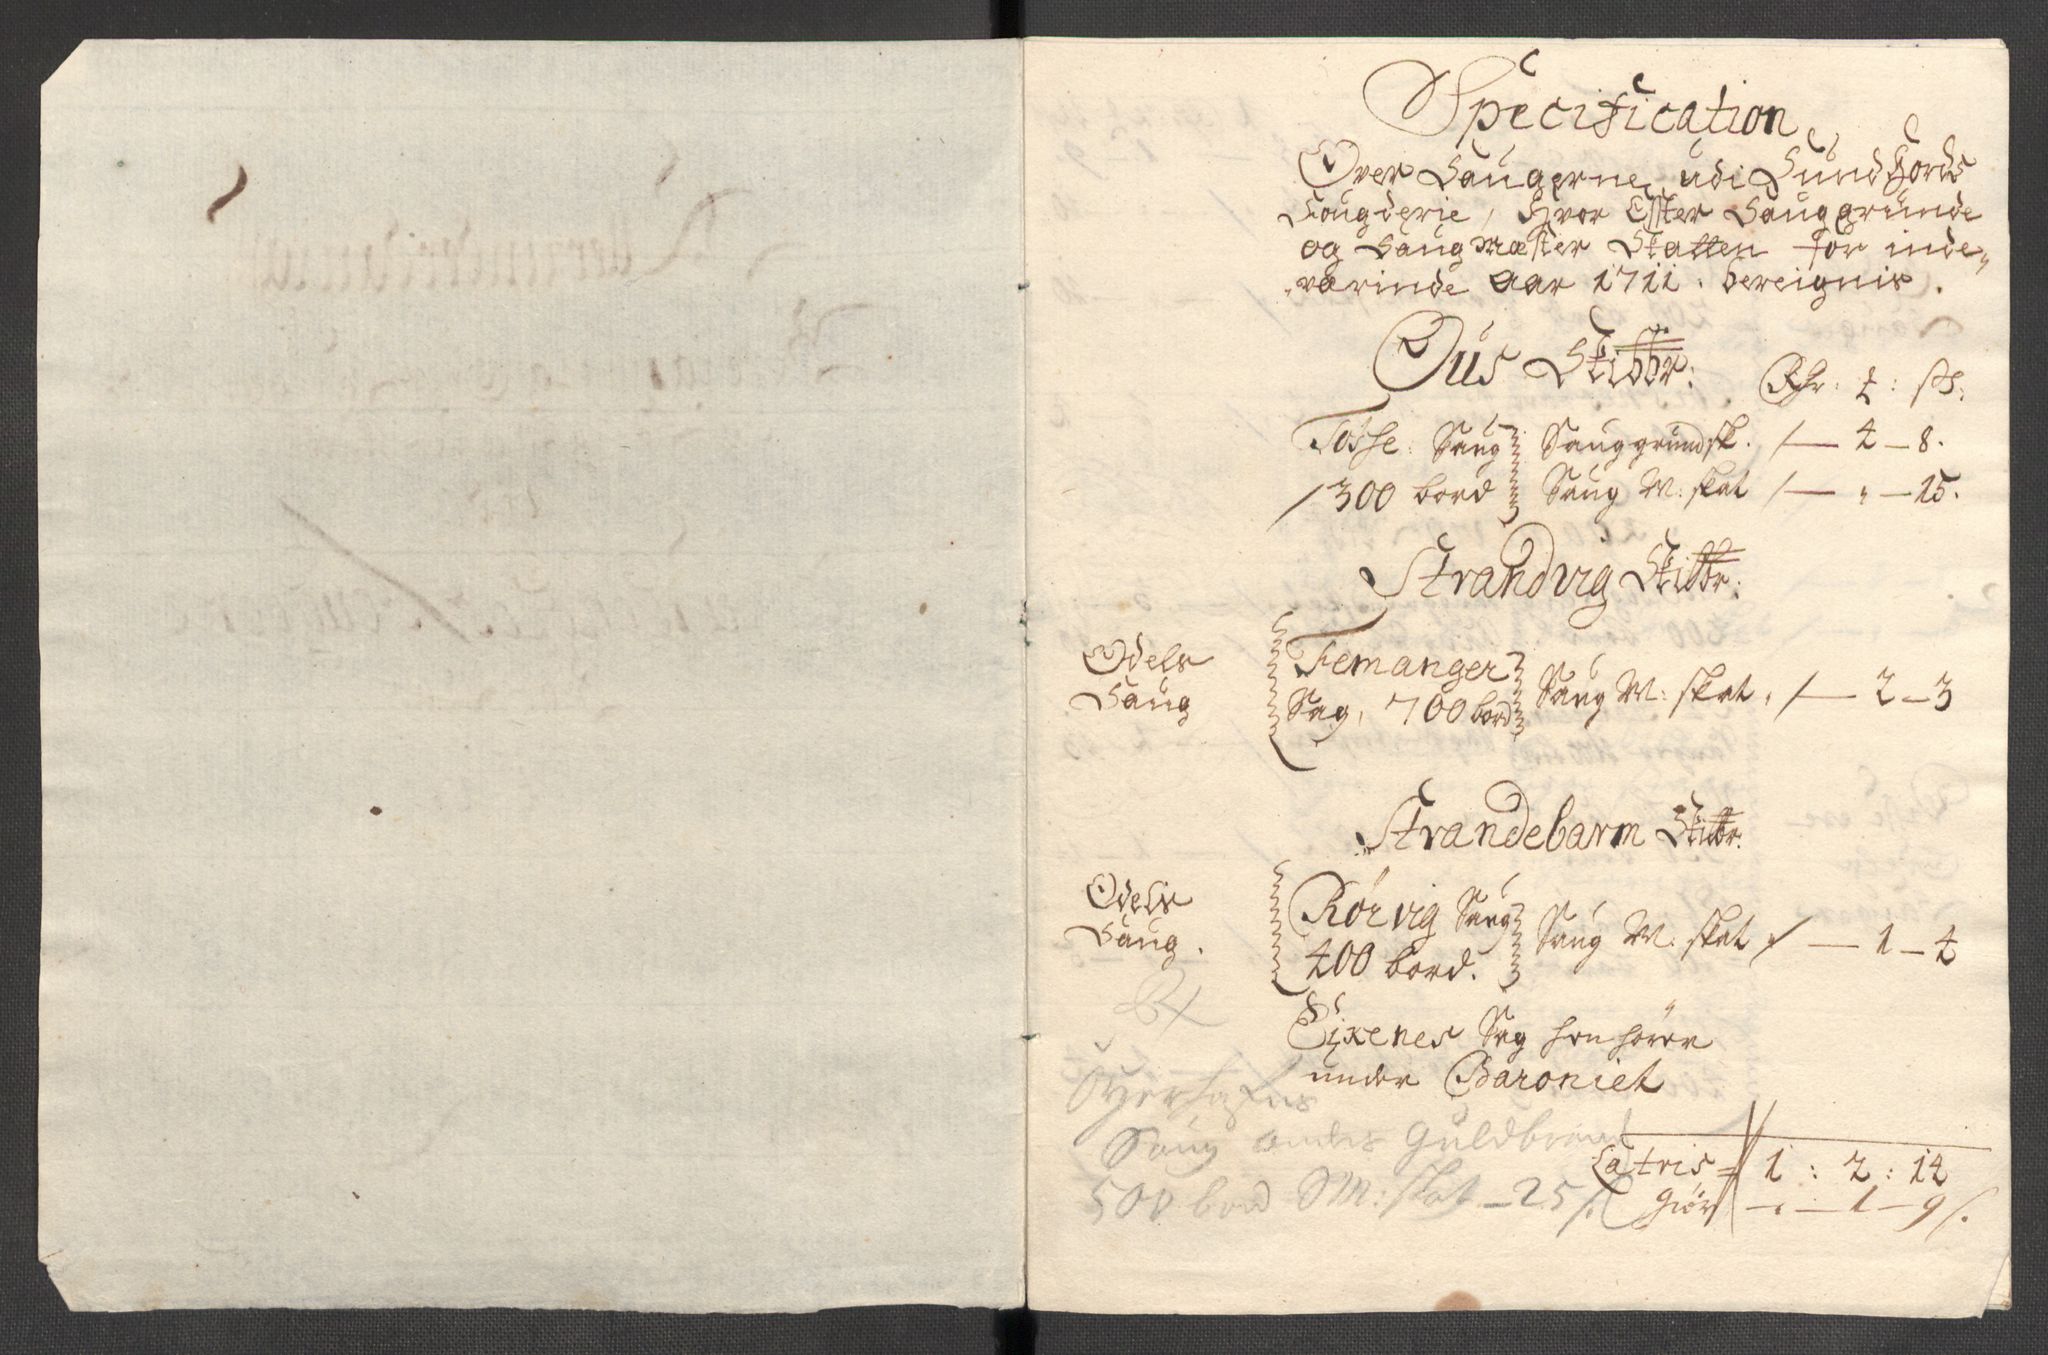 Specification
Over Saugerne udi Sundhords
Fougderie, Hvor Efter Sauggrunde
og Saugmester Skatten for inde,,
,,værinde Aar 1711. bereignis.
Ous Skibbr:
Rdr: ʒ: sk:
Tosse Saug Sauggrund sk. /— 4 — 8.
/300 bord Saug M: skat /— " — 15.
Strandvig Skibbr:
Odels
Saug
Femanger
Sag, 700 bord Saug M: skat, /— 2 — 3
Strandebarm Skibbr:
Odels
Saug.
Rørvig Saug
400 bord. Saug M: skat /— 1 — 4
Eikenes Sag henhører
under Baroniet
Saug Guldbrand
500 bord SM: skat — 25 s.
Latris = 1 : 2 : 14
Giør — " — 1 — 9 s.